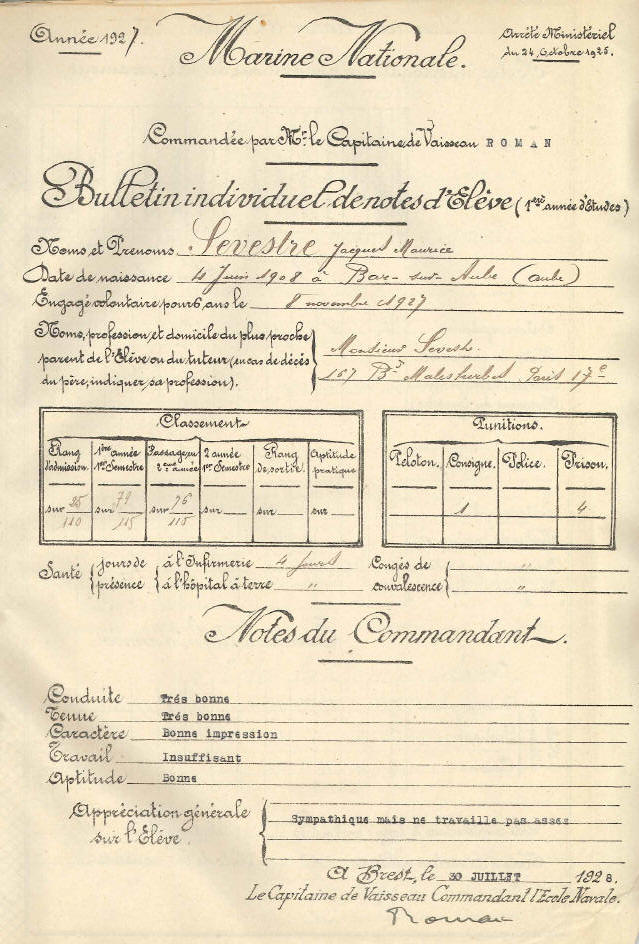 Année 1927.
Marine Nationale.
Arrêté Ministériel
du 24 Octobre 1925.
Commandée par Mr. le Capitaine de Vaisseau ROMAN
Bulletin individuel de notes d'Elève (1ère année d'Etudes)
Noms et Prénoms Sevestre Jacques Maurice
Date de naissance 4 Juin 1908 à Bar-sur-Aube (Aube)
Engagé volontaire pour 6 ans le 8 novembre 1927
Noms, profession et domicile du plus proche
parent de l'Elève ou du tuteur (en cas de décés
du père, indiquer sa profession).
Monsieur Sevestre
167 Bd Malesherbes Paris 17e
Classement
Rang d'admission. 1ère année 1er Semestre Passage en 2ème année 2 année 1er Semestre Rang de sortie. Aptitude pratique
sur 25/110 sur 79/115 sur 76/115 sur sur sur
Punitions.
Peloton. Consigne. Police. Prison.
1 4
Santé jours de présence à l'Infirmerie 4 jours
à l'hôpital à terre "
Congés de convalescence "
"
Notes du Commandant.
Conduite Trés bonne
Tenue Trés bonne
Caractère Bonne impression
Travail Insuffisant
Aptitude Bonne
Appréciation générale
sur l'Elève.
Sympathique mais ne travaille pas assez
A Brest, le 30 JUILLET 1928.
Le Capitaine de Vaisseau Commandant l'Ecole Navale.
Roman